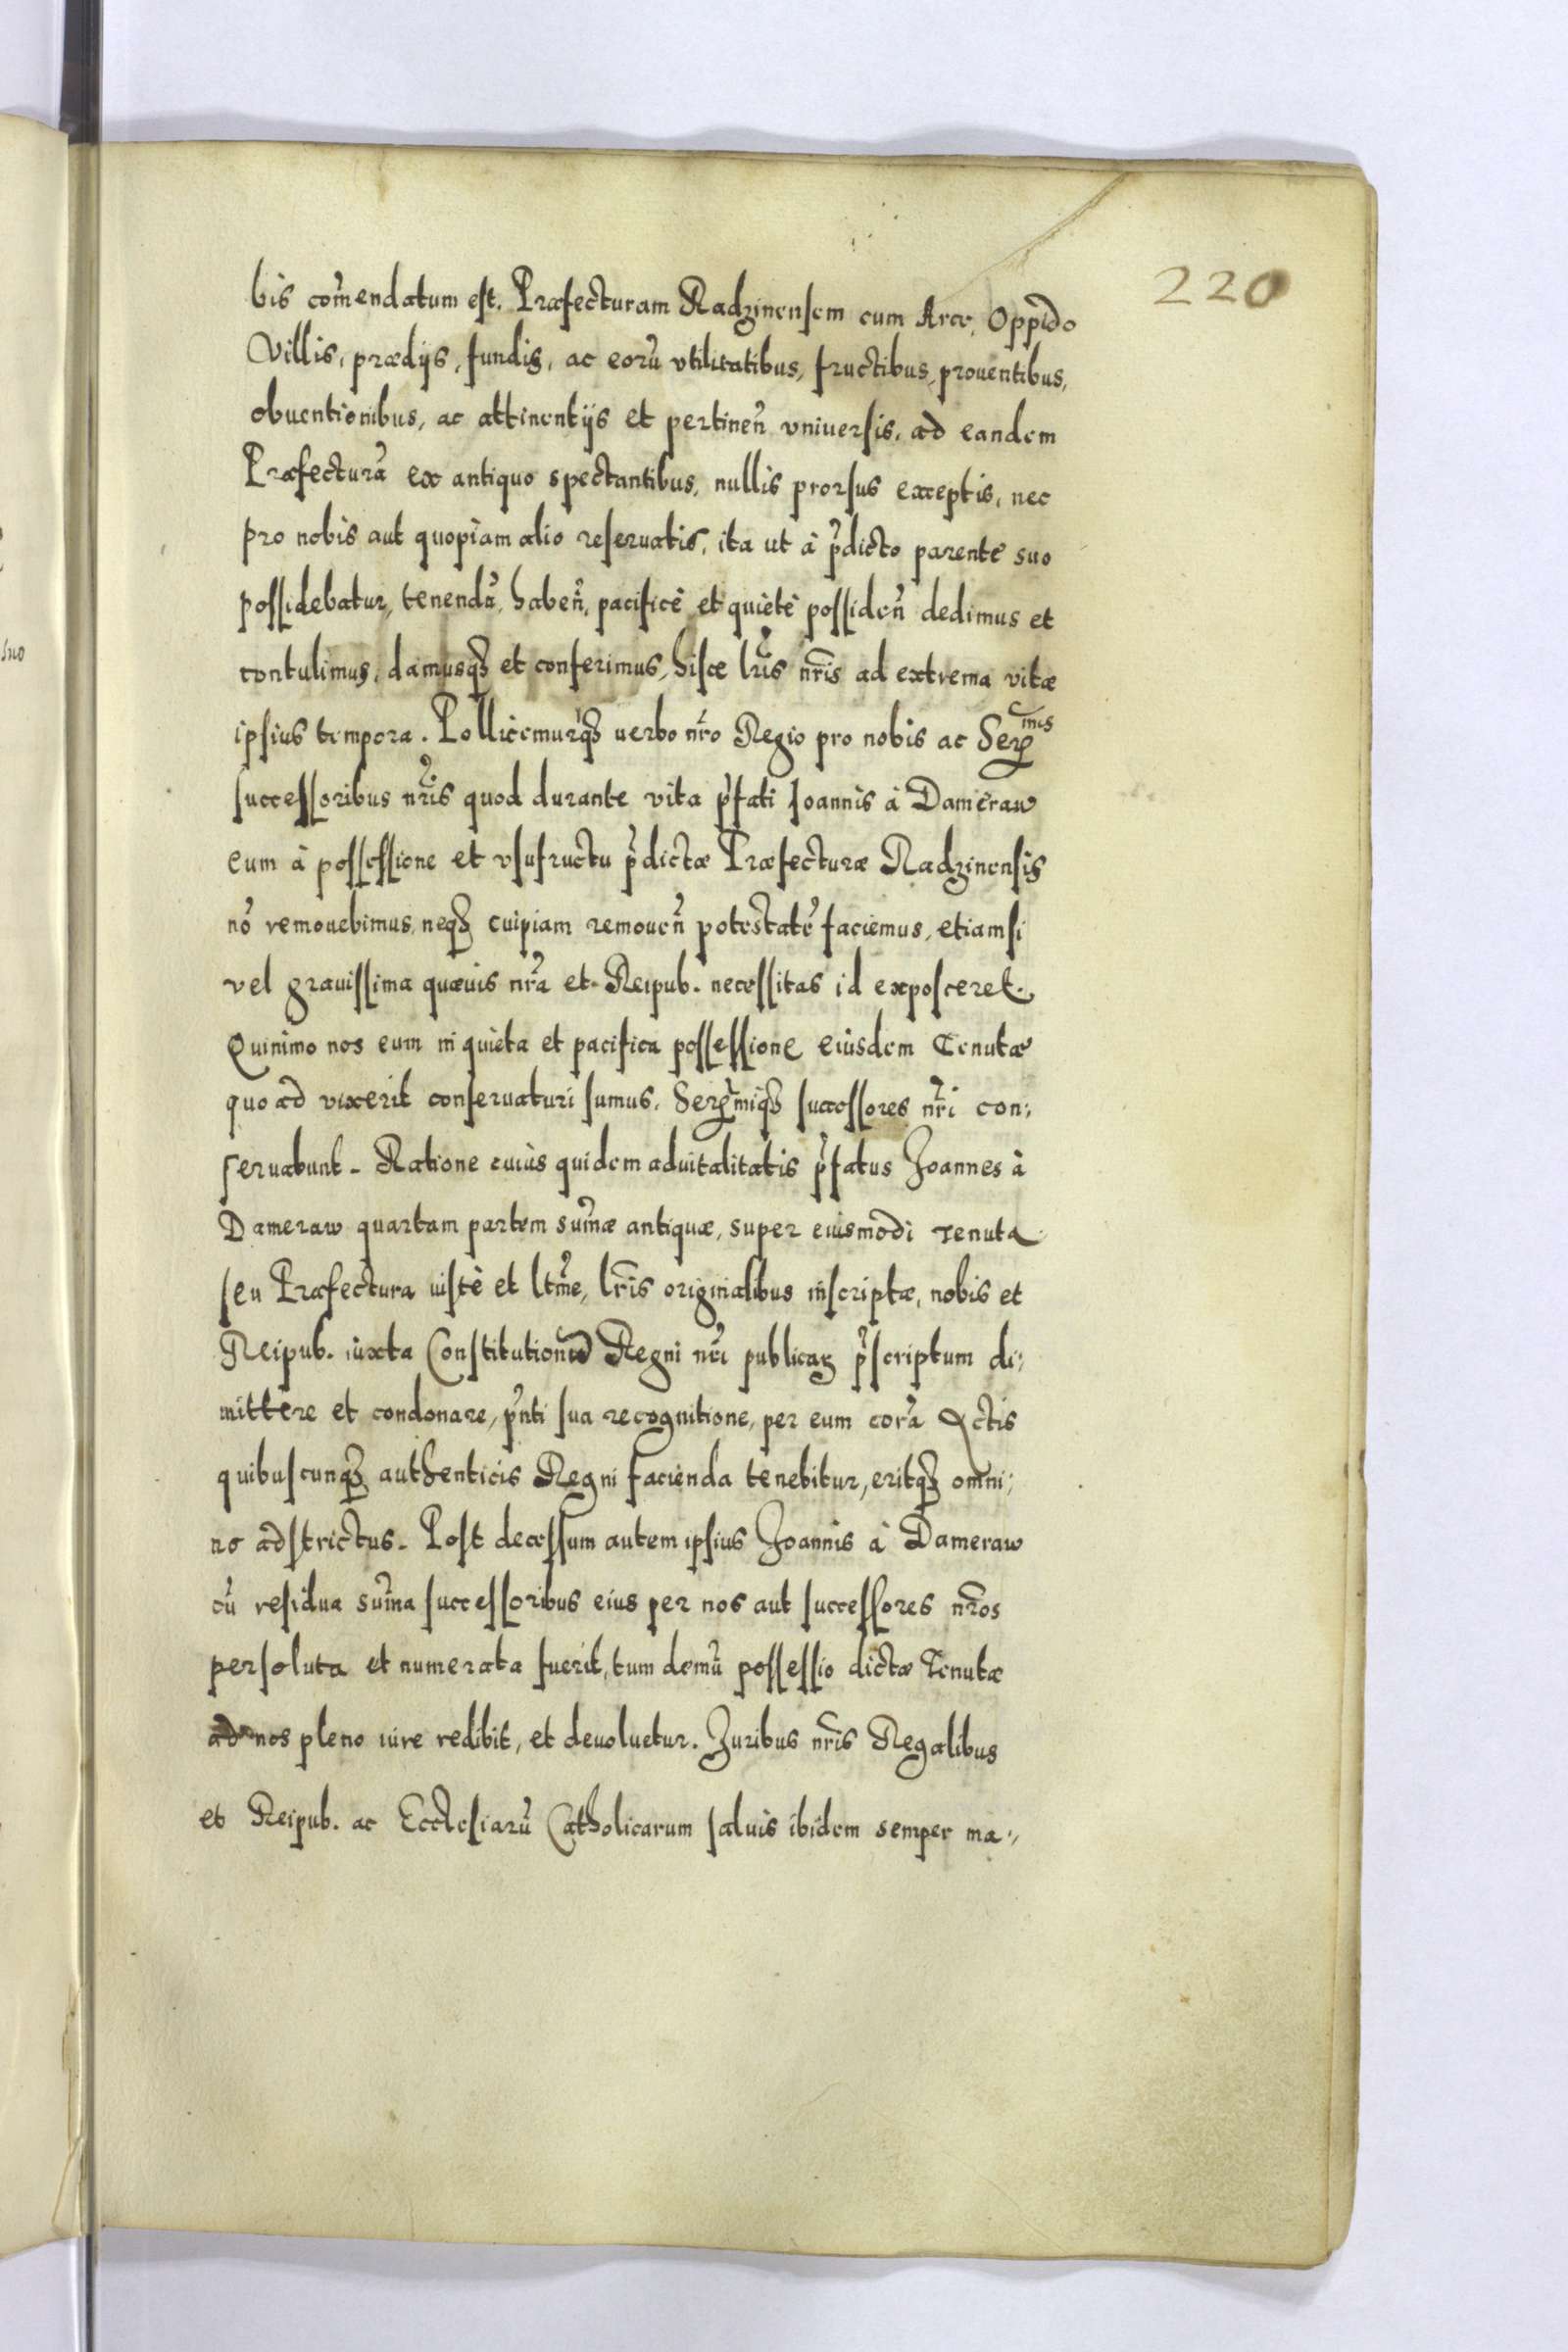 220
bis com̃endatum est. Præfecturam Radzinensem cum Arce, Oppido
Villis, prædijs, fundis, ac eorũ vtilitatibus, fructibus, prouentibus,
obuentionibus, ac attinentijs et pertineñ vniuersis, ad eandem
Præfecturã ex antiquo spectantibus, nullis prorsus exceptis, nec
pro nobis aut quopiam alio reseruatis, ita ut à p̃dicto parente suo
possidebatur, tenendã, habeñ, pacificè et quietè possideñ dedimus et
contulimus, damusqȝ et conferimus, hisce lr̃is nr̃is ad extrema vitæ
ipsius tempora. Pollicemurqȝ uerbo nr̃o Regio pro nobis ac Ser̃mis
successoribus nr̃is quod durante vita p̃fati Joannis à Dameraw
eum à possessione et vsufructu p̃dictæ Præfecturæ Radzinensis
nõ remouebimus, neqȝ cuipiam remoueñ potestatẽ faciemus, etiamsi
vel grauissima quæuis nr̃a et Reipub. necessitas id exposceret.
Quinimo nos eum in quieta et pacifica possessione eiusdem Tenutæ
quo ad vixerit conseruaturi sumus, Ser̃miqȝ successores nr̃i con:
seruabunt. Ratione cuius quidem aduitalitatis p̃fatus Joannes à
Dameraw quartam partem sum̃æ antiquæ, super eiusmodi tenuta
seu Præfectura iustè et ltm̃e, lr̃is originalibus inscriptæ, nobis et
Reipub. iuxta Constitutionũ Regni nr̃i publicaȝ p̃scriptum di:
mittere et condonare, p̃nti sua recognitione, per eum corã Actis
quibuscunqȝ authenticis Regni facienda tenebitur, eritqȝ omni:
no adstrictus. Post decessum autem ipsius Joannis à Dameraw
cũ residua sum̃a successoribus eius per nos aut successores nr̃os
persoluta et numerata fuerit, tum demũ possessio dictæ Tenutæ
ad nos pleno iure redibit, et deuoluetur. Juribus nr̃is Regalibus
et Reipub. ac Ecclesiarũ Catholicarum saluis ibidem semper ma:
suo